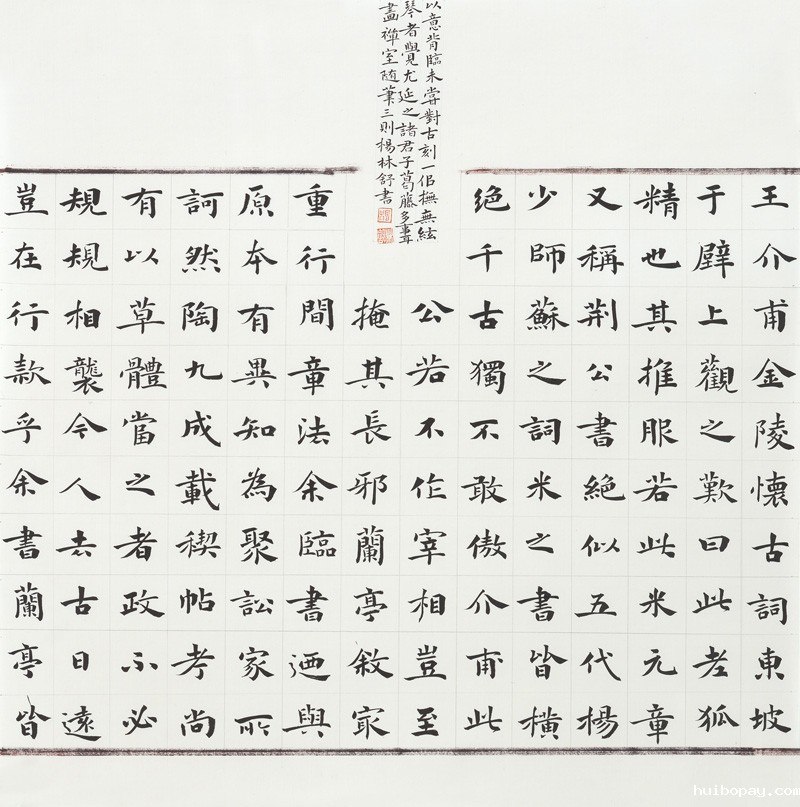 王介甫金陵懷古詞東坡
于壁上觀之歎曰此老狐
精也其推服若此米元章
又稱荆公書絕似五代楊
少師蘇之詞米之書皆橫
絕千古獨不敢傲介甫此
公若不作宰相豈至
掩其長邪蘭亭敘㝡
重行間章法余臨書迺與
原本有異知為聚訟家所
訶然陶九成載禊帖考尚
有以草體當之者政不必
規規相襲今人去古日遠
豈在行款乎余書蘭亭皆
以意背臨未嘗對古刻一佀撫無絃
琴者覺尤延之諸君子葛藤多事耳
畫禪室随筆三則楊林舒書
huibopay.com